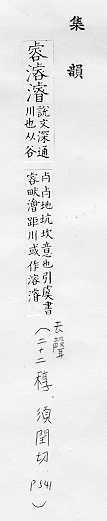 集韻
㕡濬
說文深通
川也从谷
地坑坎意也引虞書
㕡畎澮距川或作濬
去聲
(二十二稕.須閏切 P541)